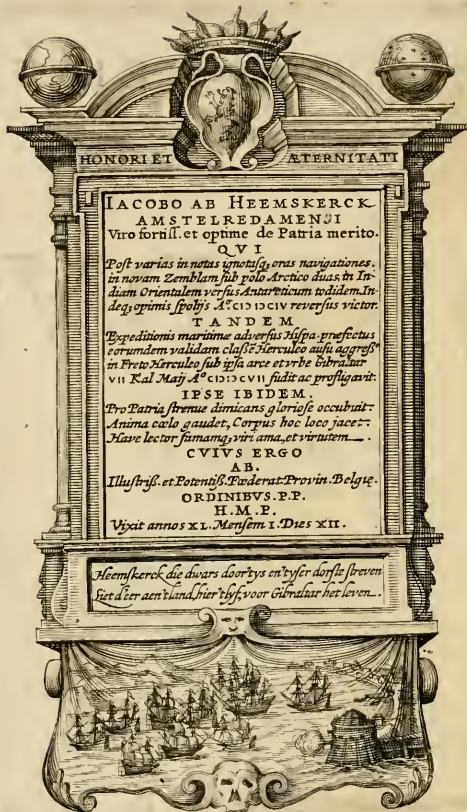 HONORI ET ÆTERNITATI
IACOBO AB HEEMSKERCK
AMSTELREDAMENSI
Viro fortiss. et optime de Patria merito.
QVI
Post varias in notas ignotasq; oras navigationes.
in novam Zemblam sub polo Arctico duas, in In-
diam Orientalem versus Antarcticum todidem. In-
deq; opimis spolijs Aº. CIƆ IƆ CIV reversus victor.
TANDEM
Expeditionis maritimæ adversus Hispa. præfectus
eorundem validam classē Herculeo ausu aggress9
in Freto Herculeo sub ipsa arce et urbe Gibraltar
VII Kal Maij Aº CIƆ IƆ CVII fudit ac profligavit.
IPSE IBIDEM.
Pro Patria strenue dimicans gloriose occubuit.
Anima cælo gaudet, Corpus hoc loco jacet.
Have lector famamq; viri ama, et virtutem.
CVIVS ERGO
AB.
Illustriss. et Potentiss. Fœderat. Provin. Belgię.
ORDINIBVS. P.P.
H.M.P.
Vixit annos XL. Mensem I. Dies XII.
Heemskerck die dwars door tys en 't yser dorste streven
Liet d'eer aen 't land, hier 't lyf, voor Gibraltar het leven.